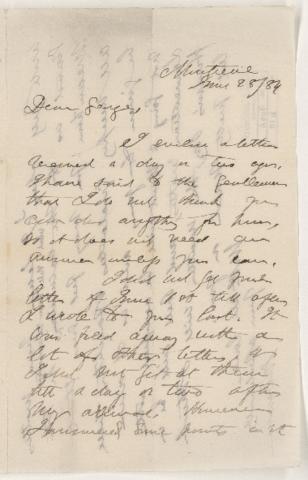 Montreal
June 28/84
Dear George
I enclose a letter
received a day or two ago.
I have said to the gentleman
that I do not think you
can do anything for him,
so it does not need an
answer unless you can.
I did not get your
letter of June 10th till after
I wrote to you last. It
was put away with a
lot of other letters &
I did not get at them
till a day or two after
my arrival. However
I answered some points in it